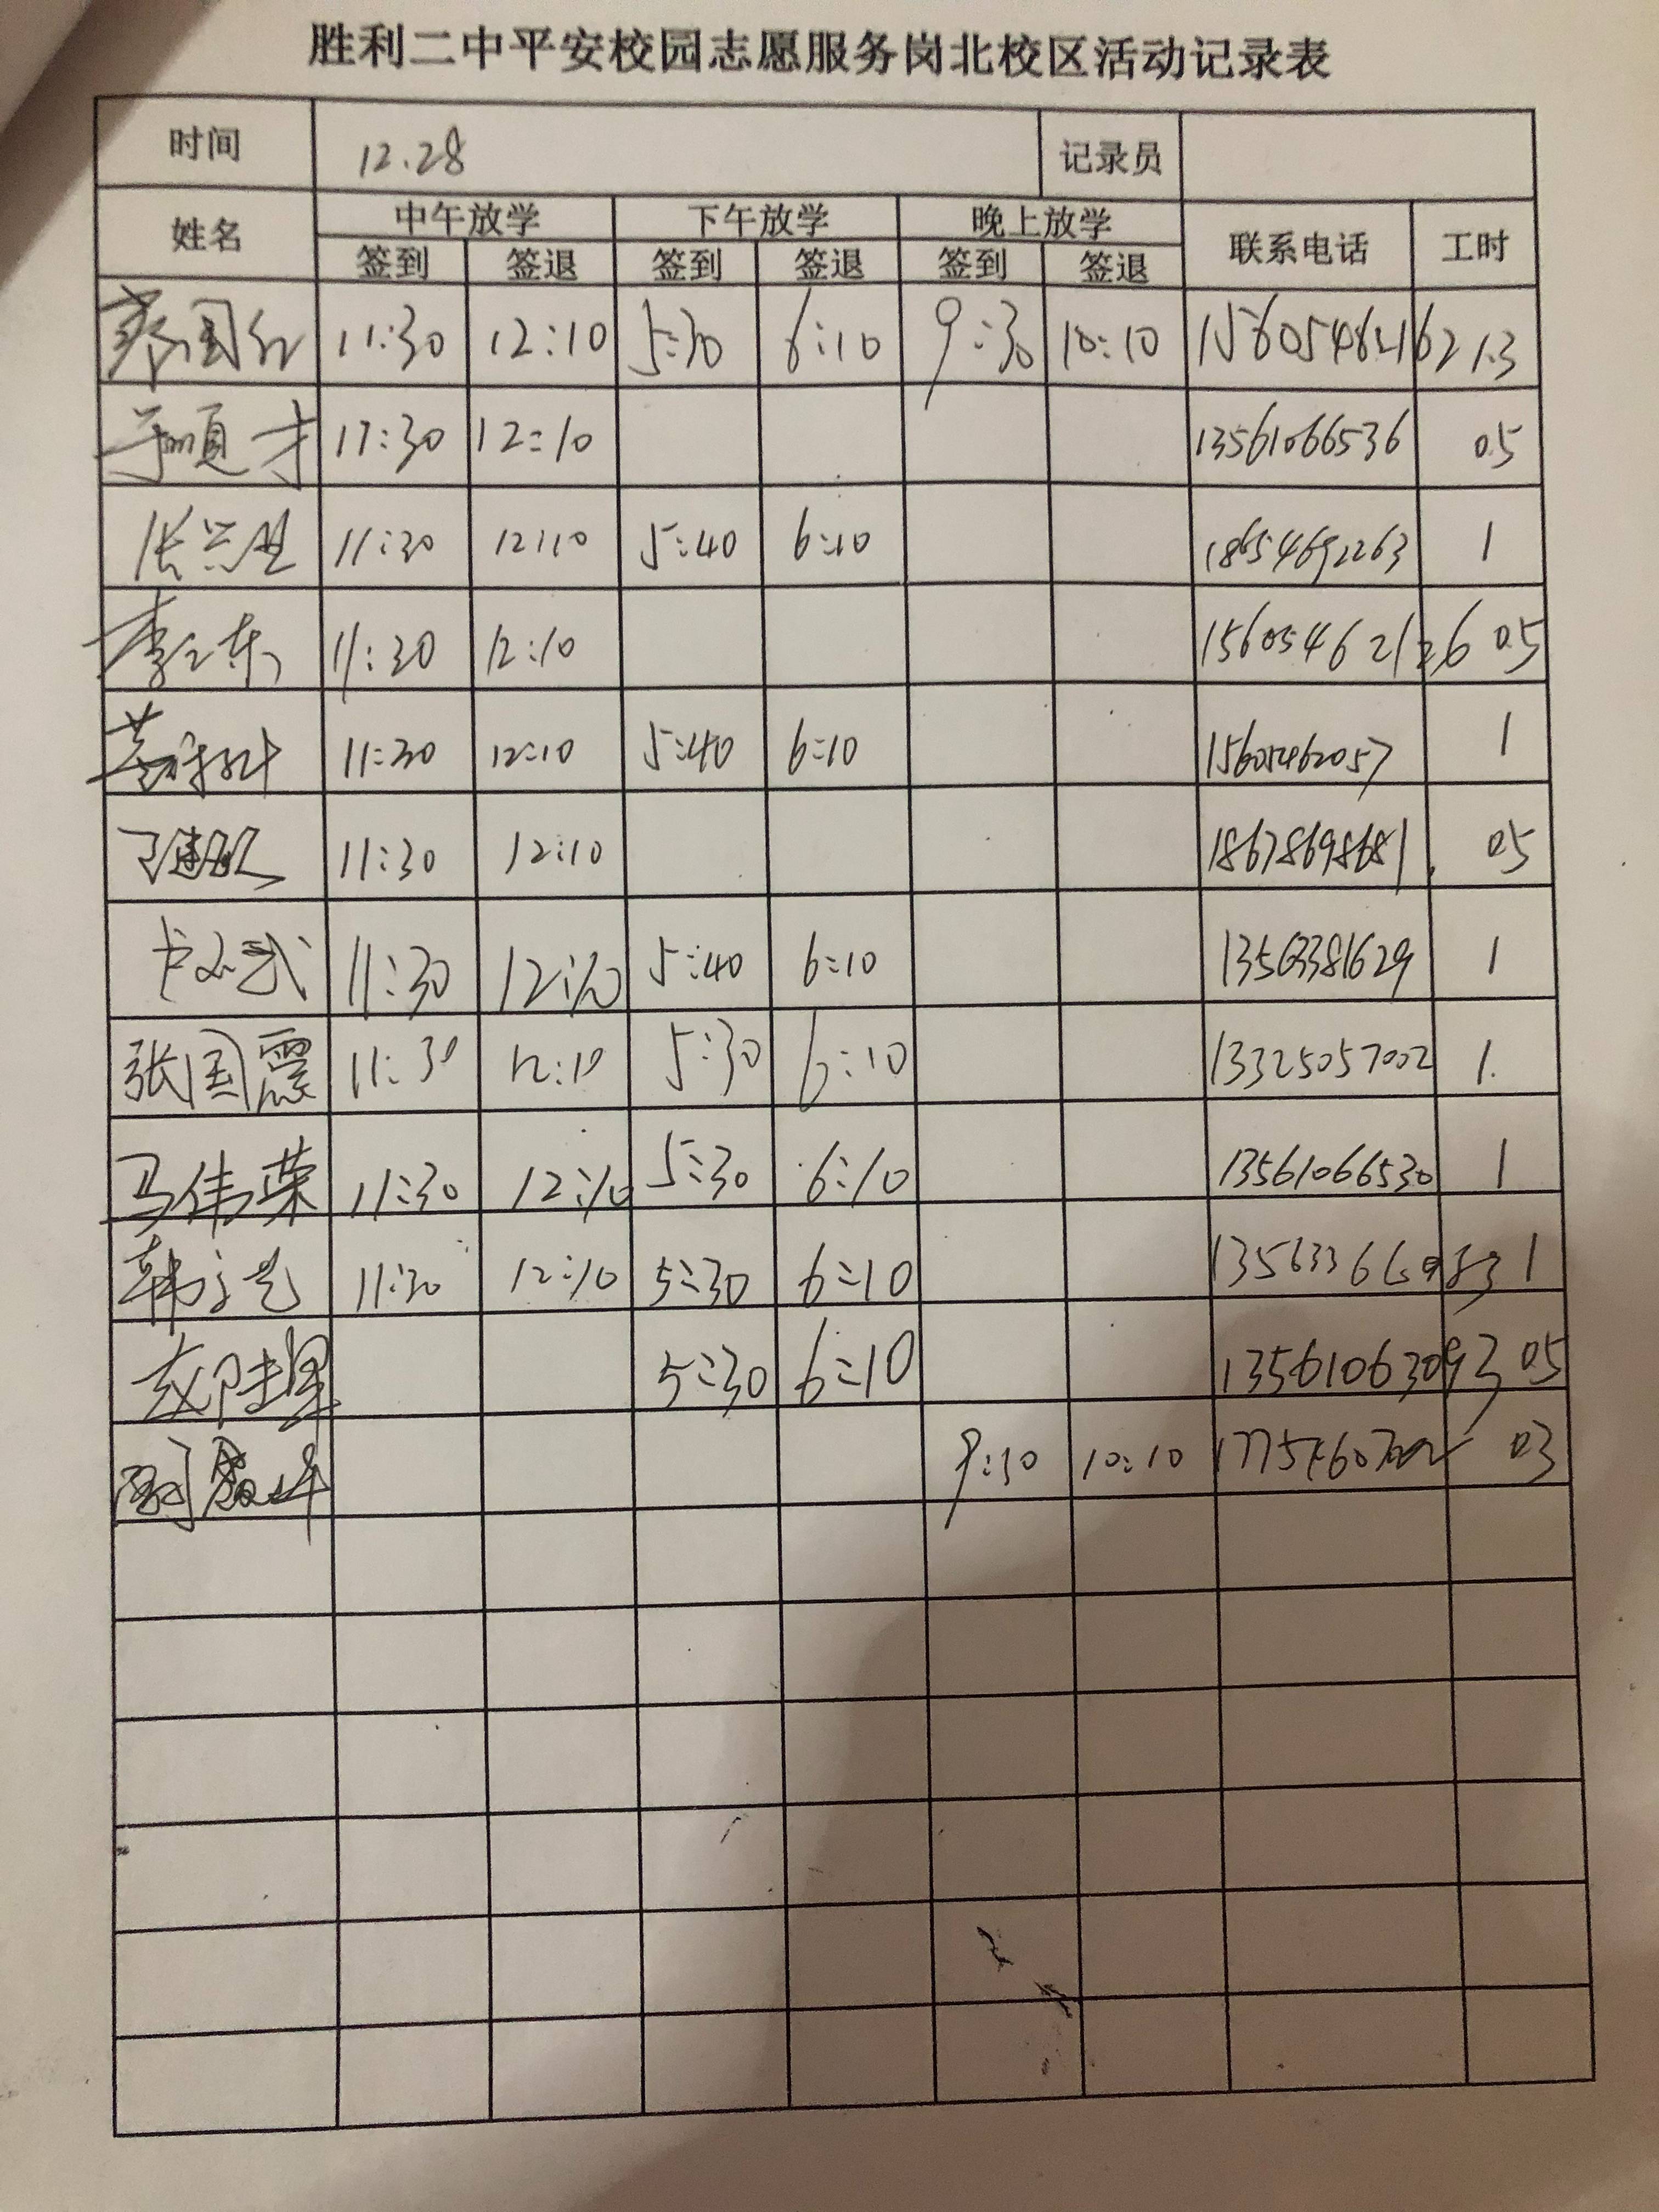 胜利二中平安校园志愿服务岗北校区活动记录表
时间 12.28 记录员
姓名 中午放学 下午放学 晚上放学 联系电话 工时
签到 签退 签到 签退 签到 签退
国红 11:30 12:10 5:30 6:10 9:30 10:10 15605462162 1.3
于顺才 11:30 12:10 13561066536 0.5
张兴 11:30 12:10 5:40 6:10 18654692263 1
李 东 11:30 12:10 15605462126 0.5
11:30 12:10 5:40 6:10 15605462057 1
11:30 12:10 18678698681 0.5
武 11:30 12:10 5:40 6:10 13563381629 1
张国震 11:30 12:10 5:30 6:10 13325057002 1.
马伟荣 11:30 12:10 5:30 6:10 13561066530 1
韩 11:30 12:10 5:30 6:10 1
5:30 6:10 13561063093 05
9:30 10:10 03